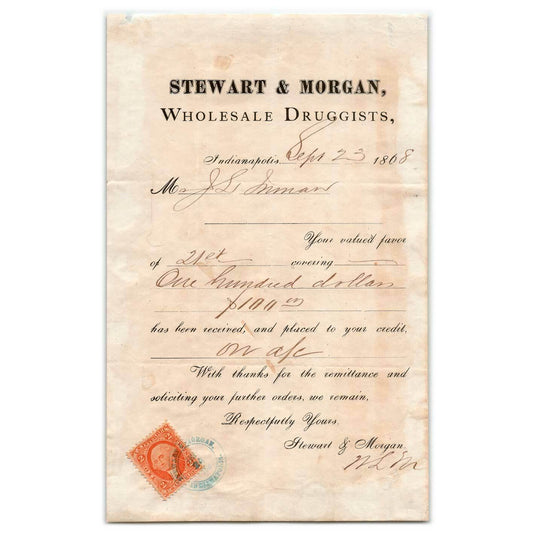 STEWART & MORGAN,
WHOLESALE DRUGGISTS,
Indianapolis, Sept 23 1868
M J L Inman
Your valued favor
of 21st covering
One hundred dollars
$100 00
has been received, and placed to your credit,
on a/c
With thanks for the remittance and
soliciting your further orders, we remain,
Respectfully Yours,
Stewart & Morgan.
MORGAN,
INDIANAPOLIS